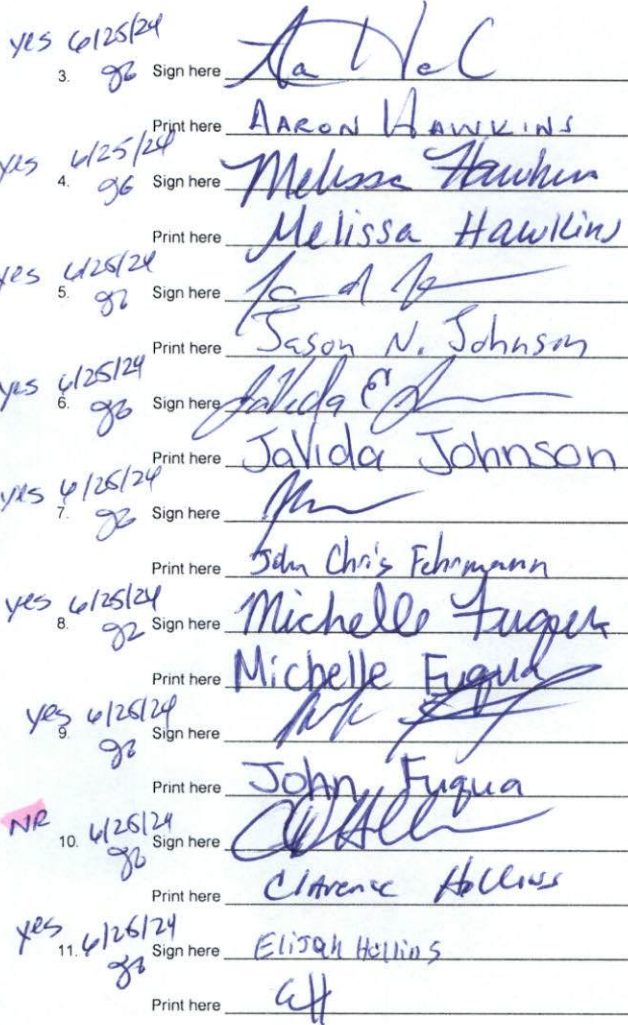 yes 6/25/24
3. Sign here
Print here AARON HAWKINS
yes 6/25/24
4. Sign here Melissa Hawkins
Print here Melissa Hawkins
yes 6/25/24
5. Sign here
Print here Jason N. Johnson
yes 6/25/24
6. Sign here JaVida
Print here JaVida Johnson
yes 6/25/24
7. Sign here
Print here John Chris Fehrmann
yes 6/25/24
8. Sign here Michelle Fuqua
Print here Michelle Fuqua
yes 6/25/24
9. Sign here
Print here John Fuqua
NR 6/25/24
10. Sign here
Print here Clarence Hollins
yes 6/25/24
11. Sign here Elijah Hollins
Print here EH